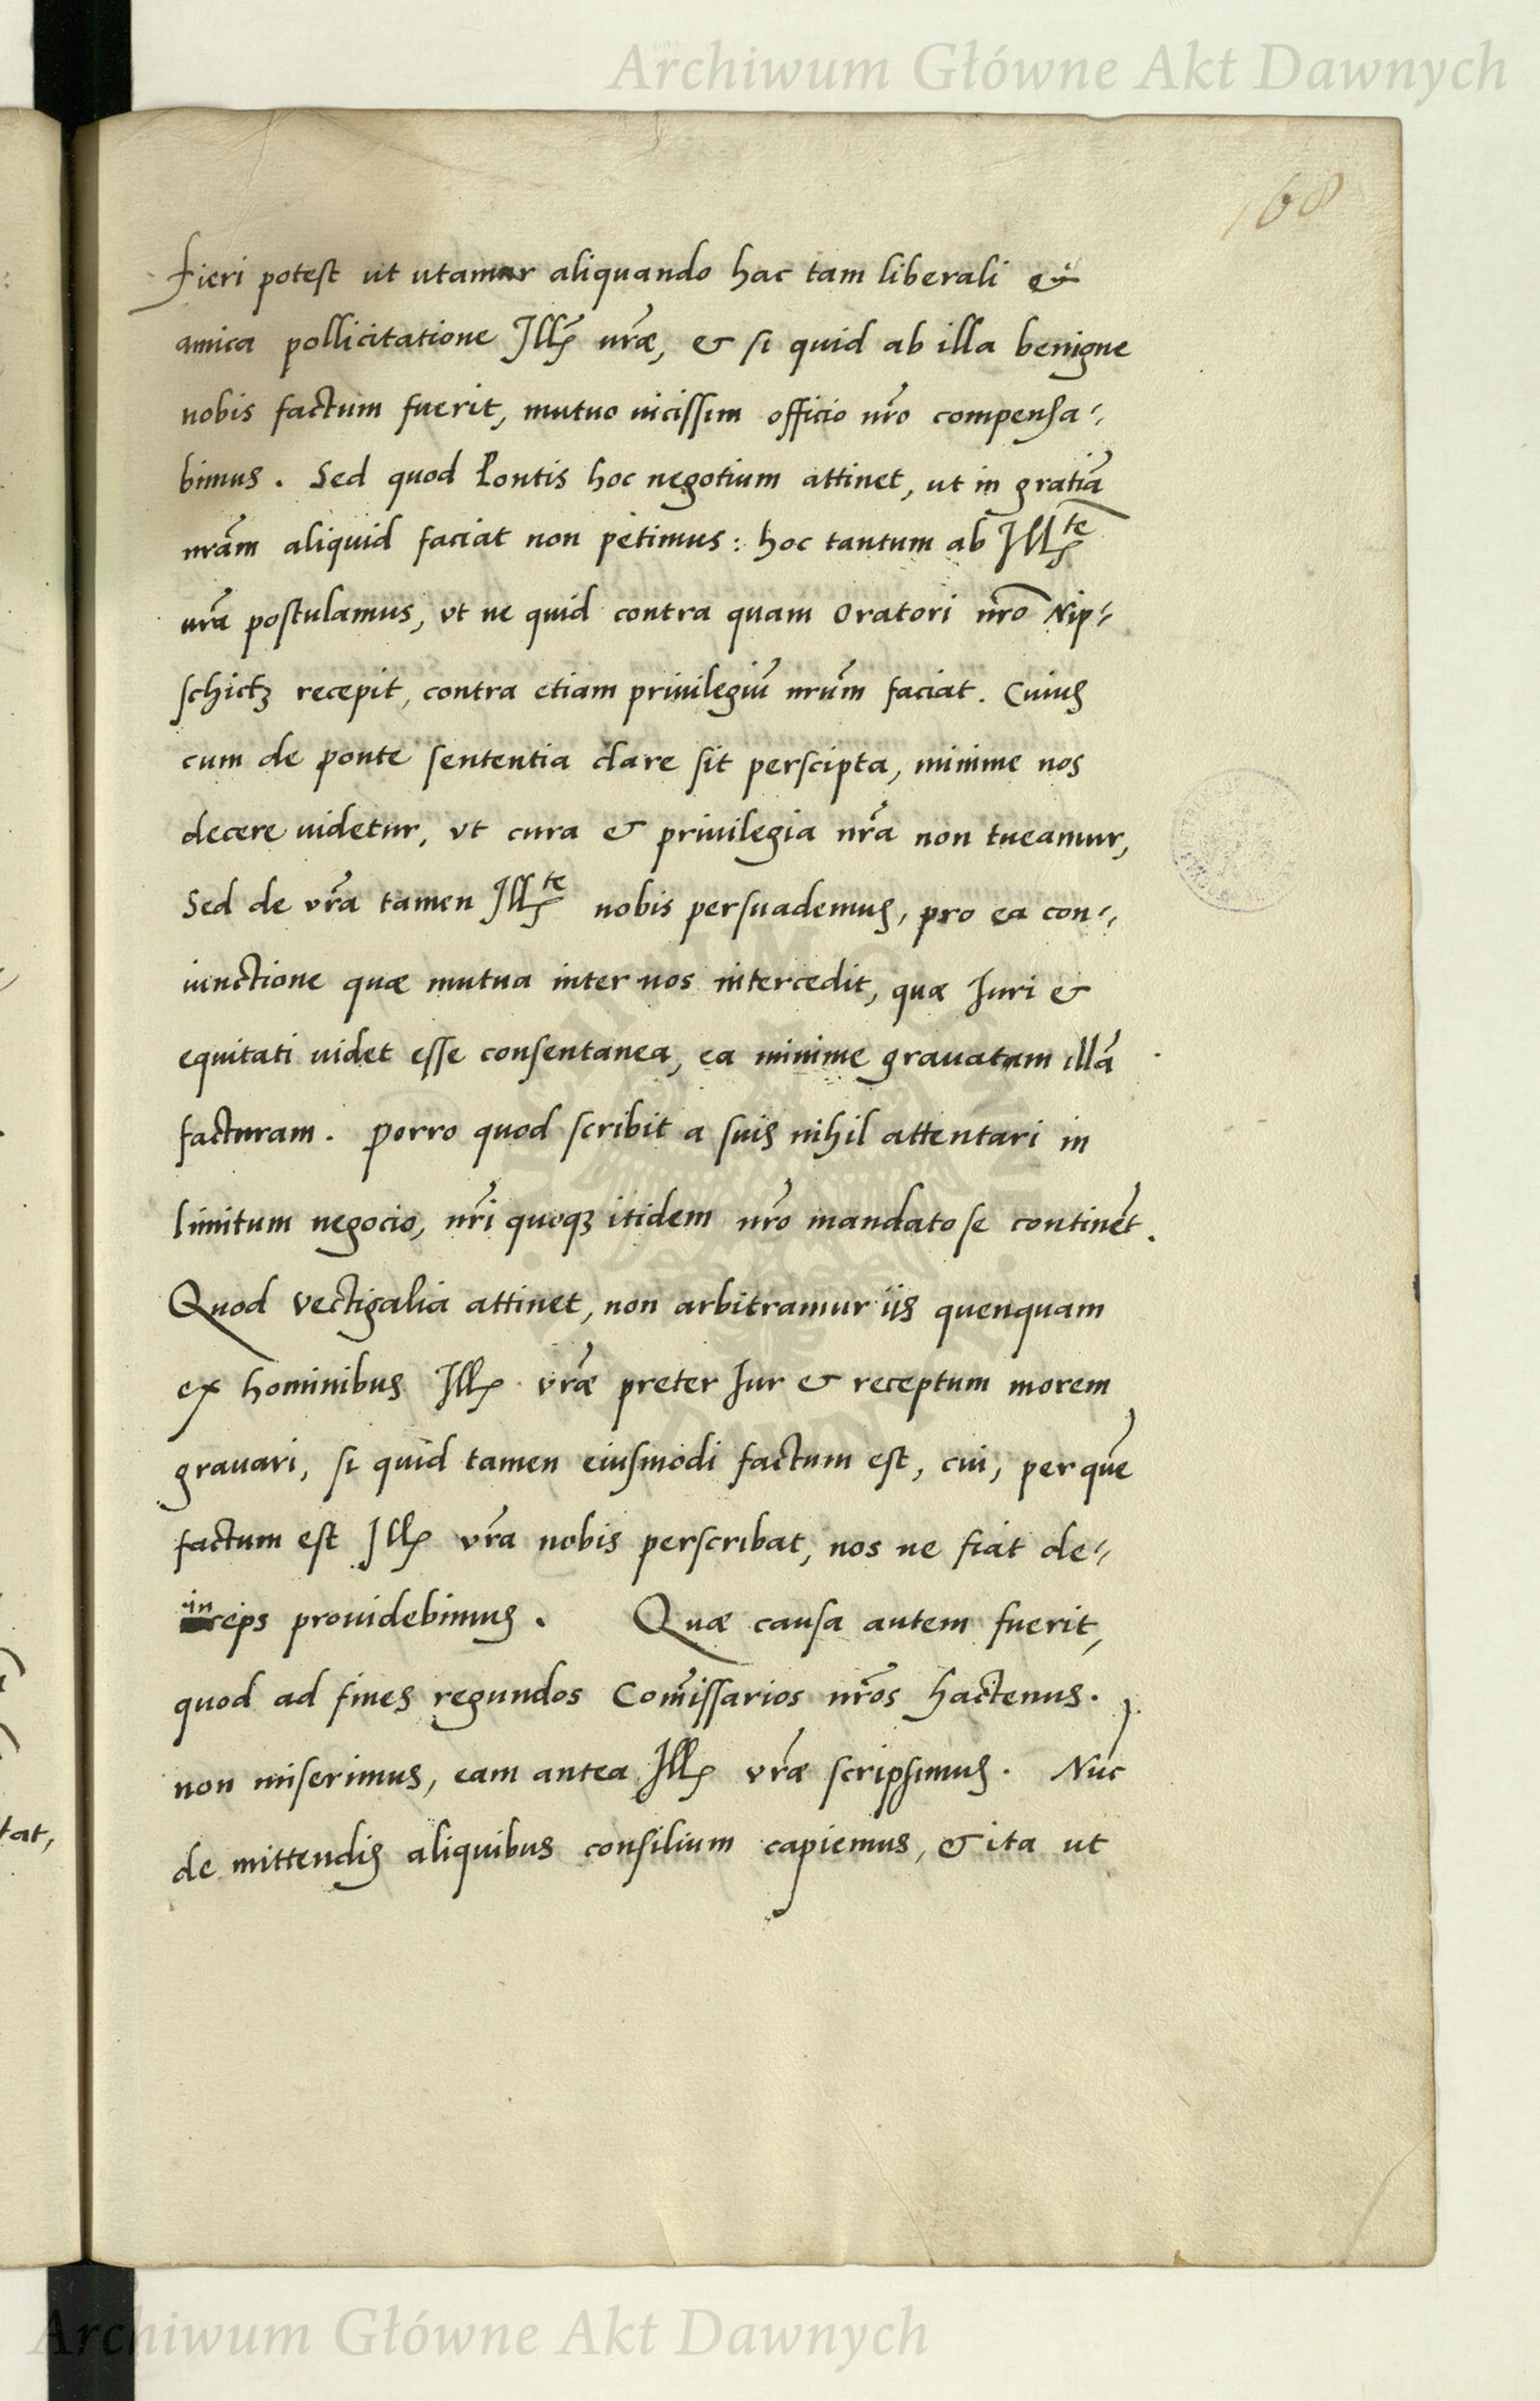 Archiwum Główne Akt Dawnych
168
Fieri potest ut utamur aliquando hac tam liberali et
amica pollicitatione Ill[ꝭ] vræ̃, & si quid ab illa benigne
nobis factum fuerit, mutuo uicissim officio nr̃o compensa-
bimus. Sed quod Pontis hoc negotium attinet, ut in gratiã
nrãm aliquid faciat non petimus: hoc tantum ab Illᵗᵉ
urã postulamus, vt ne quid contra quam Oratori nr̃o Nip-
schictz recepit, contra etiam priuilegiũ nrũm faciat. Cuius
cum de ponte sententia clare sit perscipta, minime nos
decere uidetur, vt cura & priuilegia nrã non tueamur,
Sed de vrã tamen Illᵗᵉ nobis persuademus, pro ea con-
iunctione quæ mutua inter nos intercedit, quæ Iuri &
equitati uidet esse consentanea, ea minime grauatam illã
facturam. Porro quod scribit a suis nihil attentari in
limitum negocio, nr̃i quoqꝫ itidem nr̃o mandato se continẽt.
Quod vectigalia attinet, non arbitramur iis quenquam
ex hominibus Illꝭ vræ̃ preter Iur & receptum morem
grauari, si quid tamen eiusmodi factum est, cui, per quẽ
factum est Illꝭ vrã nobis perscribat, nos ne fiat de-
inceps prouidebimus. Quæ causa autem fuerit,
quod ad fines regundos Com̃issarios nr̃os hactenus.
non miserimus, eam antea Illꝭ vræ̃ scripsimus. Nũc
de mittendis aliquibus consilium capiemus, & ita ut
tat,
Archiwum Główne Akt Dawnych